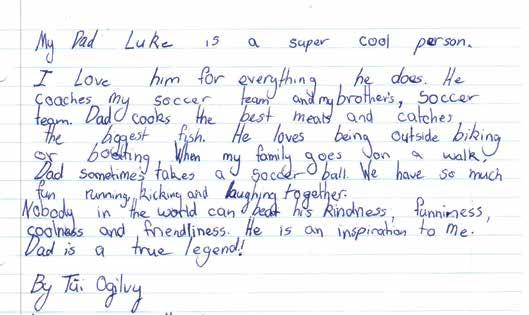 My Dad Luke is a super cool person.
I Love him for everything he does. He
coaches my soccer team and my brother's, soccer
team. Dad cooks the best meals and catches
the biggest fish. He loves being outside biking
or boating When my family goes on a walk,
Dad sometimes takes a soccer ball. We have so much
fun running, kicking and laughing together.
Nobody in the world can beat his kindness, funniness,
coolness and friendliness. He is an inspiration to me.
Dad is a true legend!
By Tūi Ogilvy